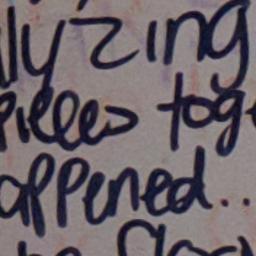 lyzing
pieces tog
appened..